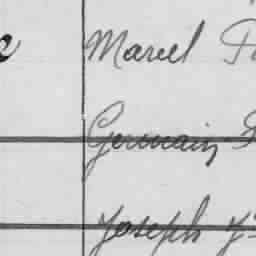 Marcel
Germain
Joseph